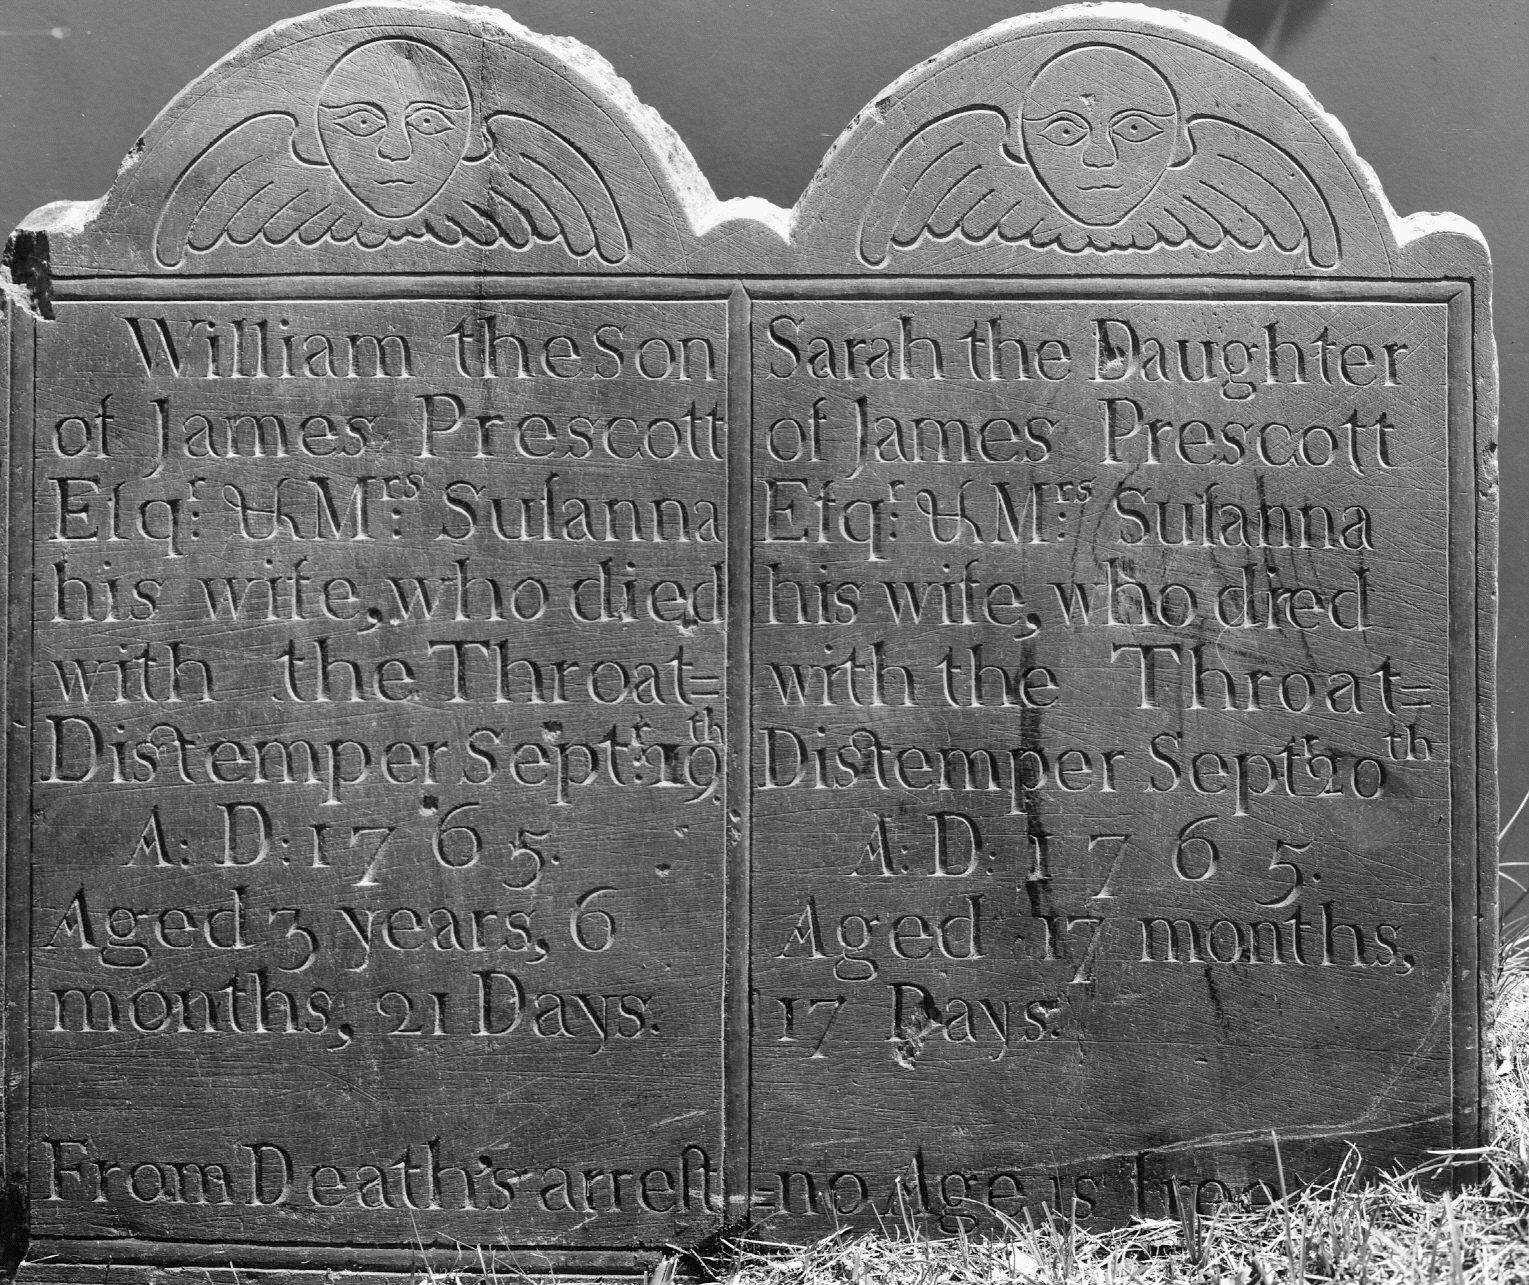 William the Son
of James Prescott
Eſqr. & Mrs. Suſanna
his wife, who died
with the Throat=
Distemper Septr. 19th
A.D: 1765.
Aged 3 years, 6
months, 21 Days.
Sarah the Daughter
of James Prescott
Eſqr. & Mrs. Suſanna
his wife, who died
with the Throat=
Distemper Septr. 20th
A.D: 1765.
Aged 17 months,
17 Days.
From Death's arreſt =no Age is free